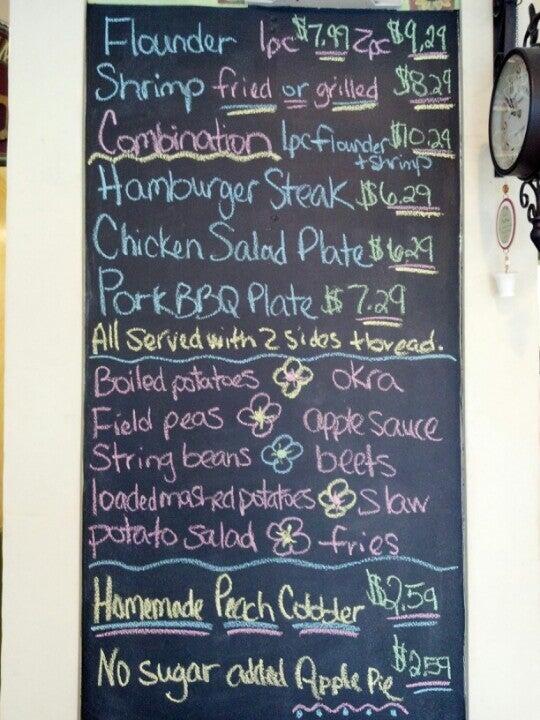 Flounder 1pc $7.99 2pc $9.29
Shrimp fried or grilled $8.29
Combination 1pc flounder + shrimp $10.29
Hamburger Steak $6.29
Chicken Salad Plate $6.29
Pork BBQ Plate $7.29
All Served with 2 sides + bread.
Boiled potatoes okra
Field peas apple sauce
String beans beets
loaded mashed potatoes slaw
potato salad fries
Homemade Peach Cobbler $2.59
No sugar added Apple Pie $2.59